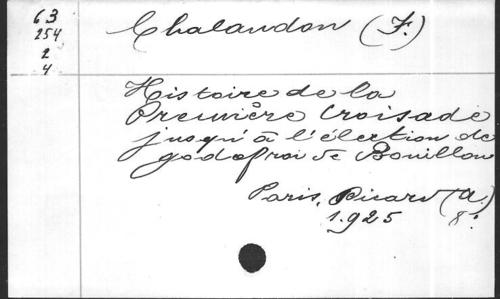 63
254
2
4
Chalandon (F.)
Histoire de la
Première Croisade
jusqu'à l'élection de
godefroi de Bouillon
Paris, Picard (A.)
1.925 8°.